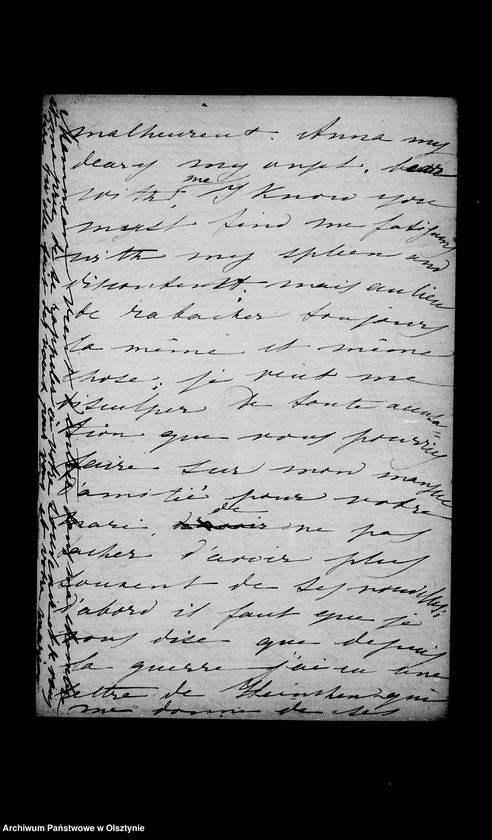 malheureux. Anna my
deary my angel, bear
with me I know you
must find me fatiguing
with my spleen and
discontent. mais au lieu
de rabacher toujours
la même et même
chose, je veux me
disculper de toute accusa=
tion que vous pourriez
faire sur mon manque
d'amitié pour votre
mari, de ne pas
tacher d'avoir plus
souvent de ses nouvelles;
d'abord il faut que je
vous dise que depuis
la guerre j'ai eu une
lettre de qui
me donne de ses
Archiwum Państwowe w Olsztynie